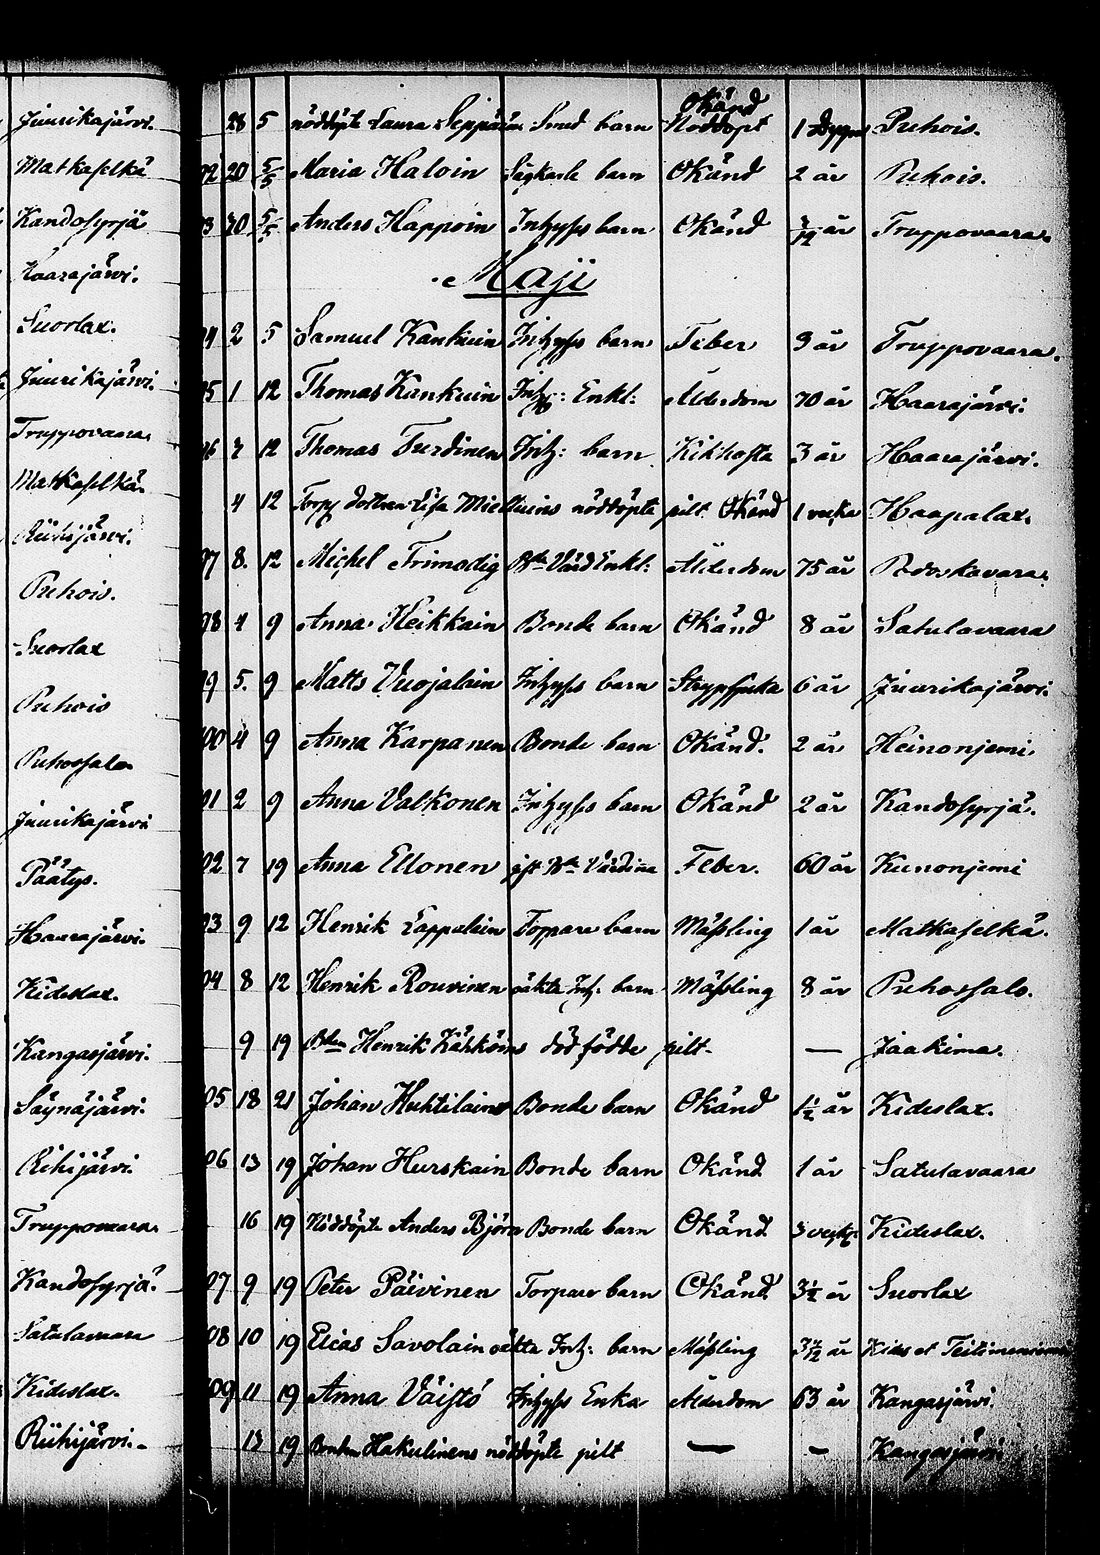 Juurikajärvi.
Matkaselkä
Kandosyrjä
Haarajärvi.
Suorlax.
Juurikajärvi.
Truppovaara.
Matkaselkä.
Riihijärvi.
Puhois.
Suorlax
Puhois
Puhossalo
Juurikajärvi
Päätys.
Haarajärvi.
Kideslax.
Kangasjärvi.
Säynäjärvi.
Riihijärvi.
Truppovaara.
Kandosyrjä.
Satulavaara
Kideslax.
Riihijärvi.
28 5 nöddöpte Laura Seppäin Smed barn Okänd Nöddöpt 1 Puhois.
92 20 5/5 Maria Haloin barn Okänd 2 år Puhois.
93 30 5/5 Anders Happoin Inhyses barn Okänd år Truppovaara.
Maji
94 2 5 Samuel Kankuin Inhyses barn Feber 9 år Truppovaara.
95 1 12 Thomas Kankuin Inhys: Enkl: Ålderdom 70 år Haarajärvi.
96 7 12 Thomas Turdinen Inh: barn Kikhosta 3 år Haarajärvi.
4 12 Torp dottren Lisa nöddöpte pilt Okänd 1 veka Haapalax.
97 8. 12 Michel Frimodig Bde Värd Enkl: Ålderdom 75 år Podoskavaara.
98 4 9 Anna Heikkain Bonde barn Okänd 8 år Satulavaara
99 5. 9 Matts Vuojalain Inhyses barn Strypsjuka 6 år Juurikajärvi.
100 4 9 Anna Karpanen Bonde barn Okänd. 2 år Heinonjemi.
101 2 9 Anna Valkonen Inhyses barn Okänd 2 år Kandosyrjä.
102 7 19 Anna Ellonen gift Bde Värdina Feber. 60 år Kunonjemi
103 9 12 Henrik Lappalain Torpare barn Mässling 1 år Matkaselkä.
104 8 12 Henrik Rouvinen oäkta Inh: barn Mässling 8 år Puhossalo.
9 19 Bden Henrik Kähköns död födde pilt - — Jaakima.
105 18 21 Johan Huhtilain Bonde barn Okänd 1½ år Kideslax.
106 13 19 Johan Hurskain Bonde barn Okänd 1 år Satulavaara
16 19 Nöddöpte Anders Björn Bonde barn Okänd 3 veckr Kideslax.
107 9 19 Peter Päivinen Torpare barn Okänd 3½ år Suorlax
108 10 19 Elias Savolain oäkta Inh: barn Mässling år Kides et
109 11 19 Anna Väistö Inhyses Enka Ålderdom 63 år Kangasjärvi.
13 19 Bonden Hakulinens nöddöpte pilt — – Kangasjärvi